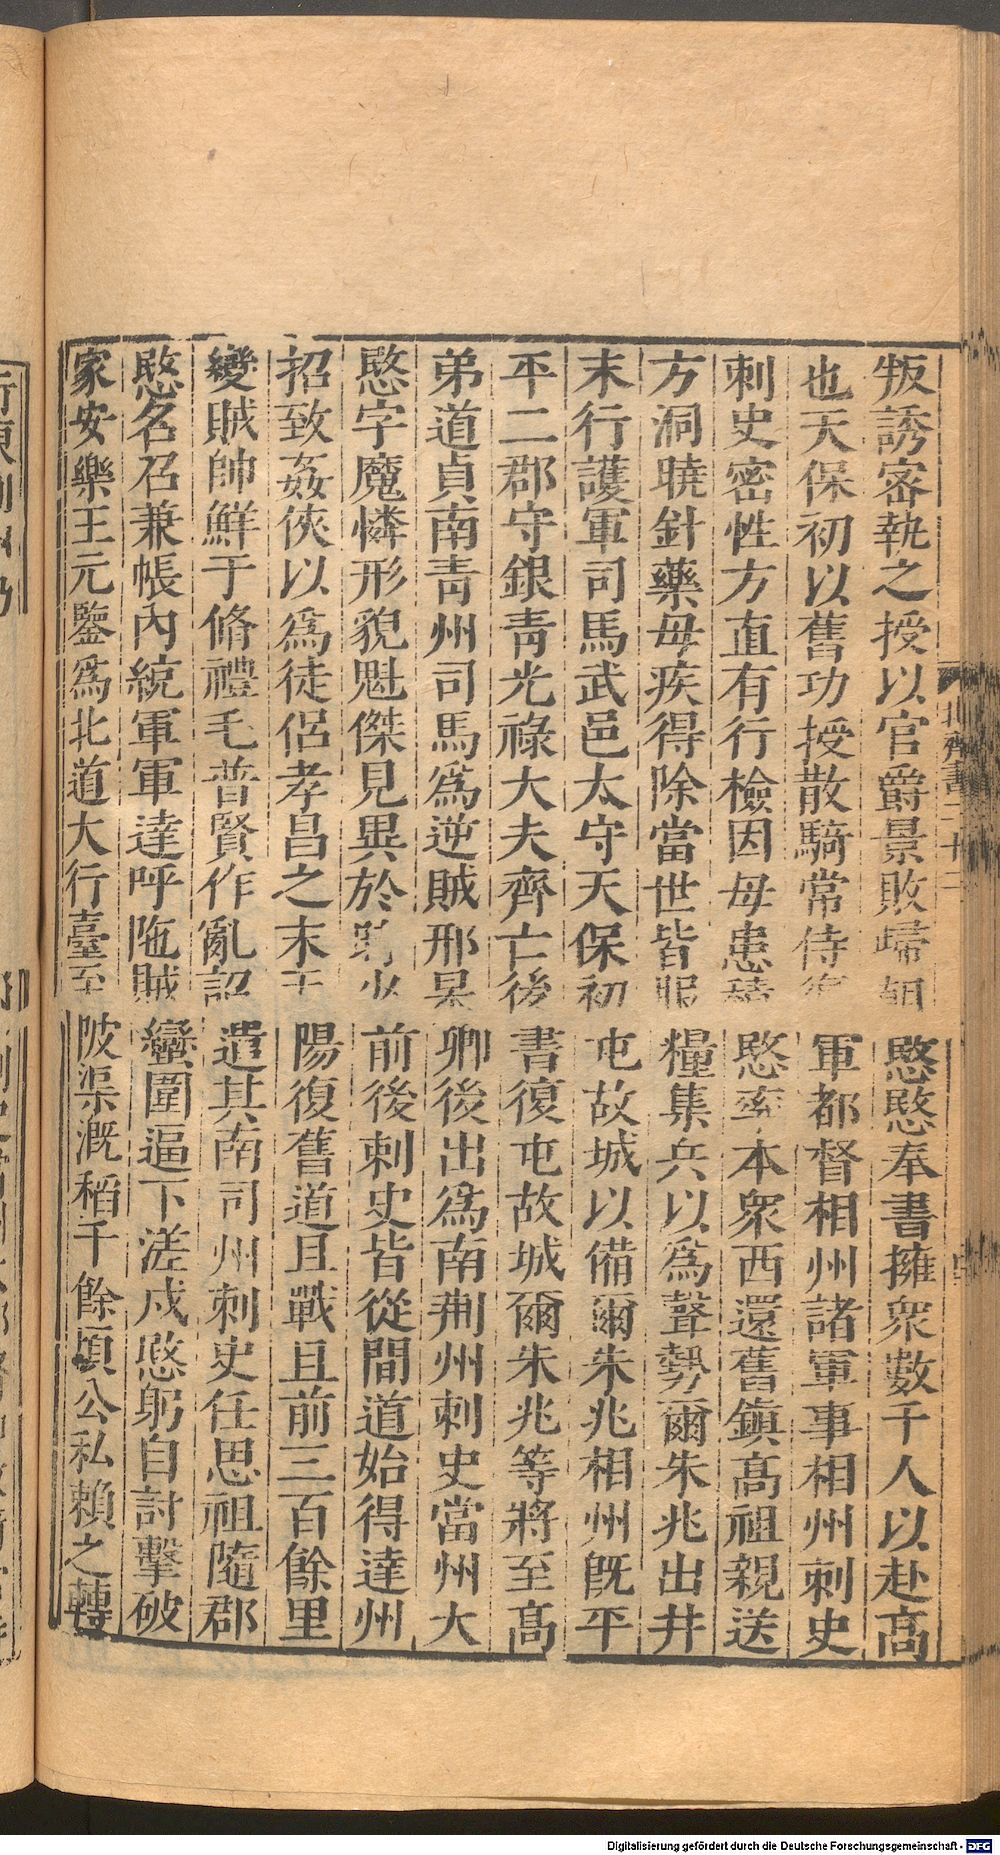 叛誘密執之授以官爵景敗歸朝愍愍奉書擁衆數千人以赴高
也天保初以舊功授散騎常侍復軍都督相州諸軍事相州刺史
刺史密性方直有行檢因母患積愍率本衆西還舊鎮髙祖親送
方洞曉針藥母疾得除當世皆服糧集兵以爲聲勢爾朱兆出井
末行護軍司馬武邑太守天保初屯故城以備爾朱兆相州旣平
平二郡守銀靑光祿大夫齊亡後書復屯故城爾朱兆等將至髙
弟道貞南靑州司馬爲逆賊邢杲卿後出爲南荆州刺史當州大
愍字魔憐形貌魁傑見異於時少前後刺史皆從間道始得達州
招致姦俠以爲徒侶孝昌之末天陽復舊道且戰且前三百餘里
變賊帥鮮于脩禮毛普賢作亂詔遣其南司州刺史任思祖隨郡
愍名召兼帳內統軍軍達呼陁賊蠻圍逼下溠戍愍躬自討擊破
家安樂王元鑒爲北道大行臺至陂渠溉稻千餘頃公私賴之轉
北齊書二十二
Digitalisierung gefördert durch die Deutsche Forschungsgemeinschaft - DFG